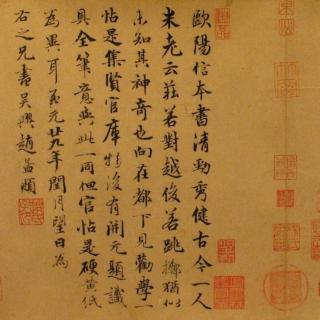 歐陽信本書清勁秀健古今一人
米老云莊若對越俊若跳擲猶似
未知其神奇也向在都下見勸學一
帖是集賢官庫物後有開元題識
具全筆意與此一同但官帖是硬黃紙
為異耳至元廿九年閏月望日為
右之兄書吳興趙孟頫